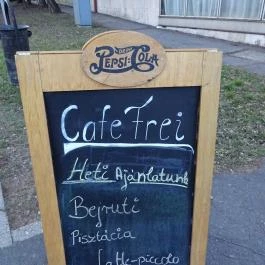 PEPSI-COLA
Cafe Frei
Heti Ajánlatunk
Bejruti
Pisztácia
Latte-piccolo